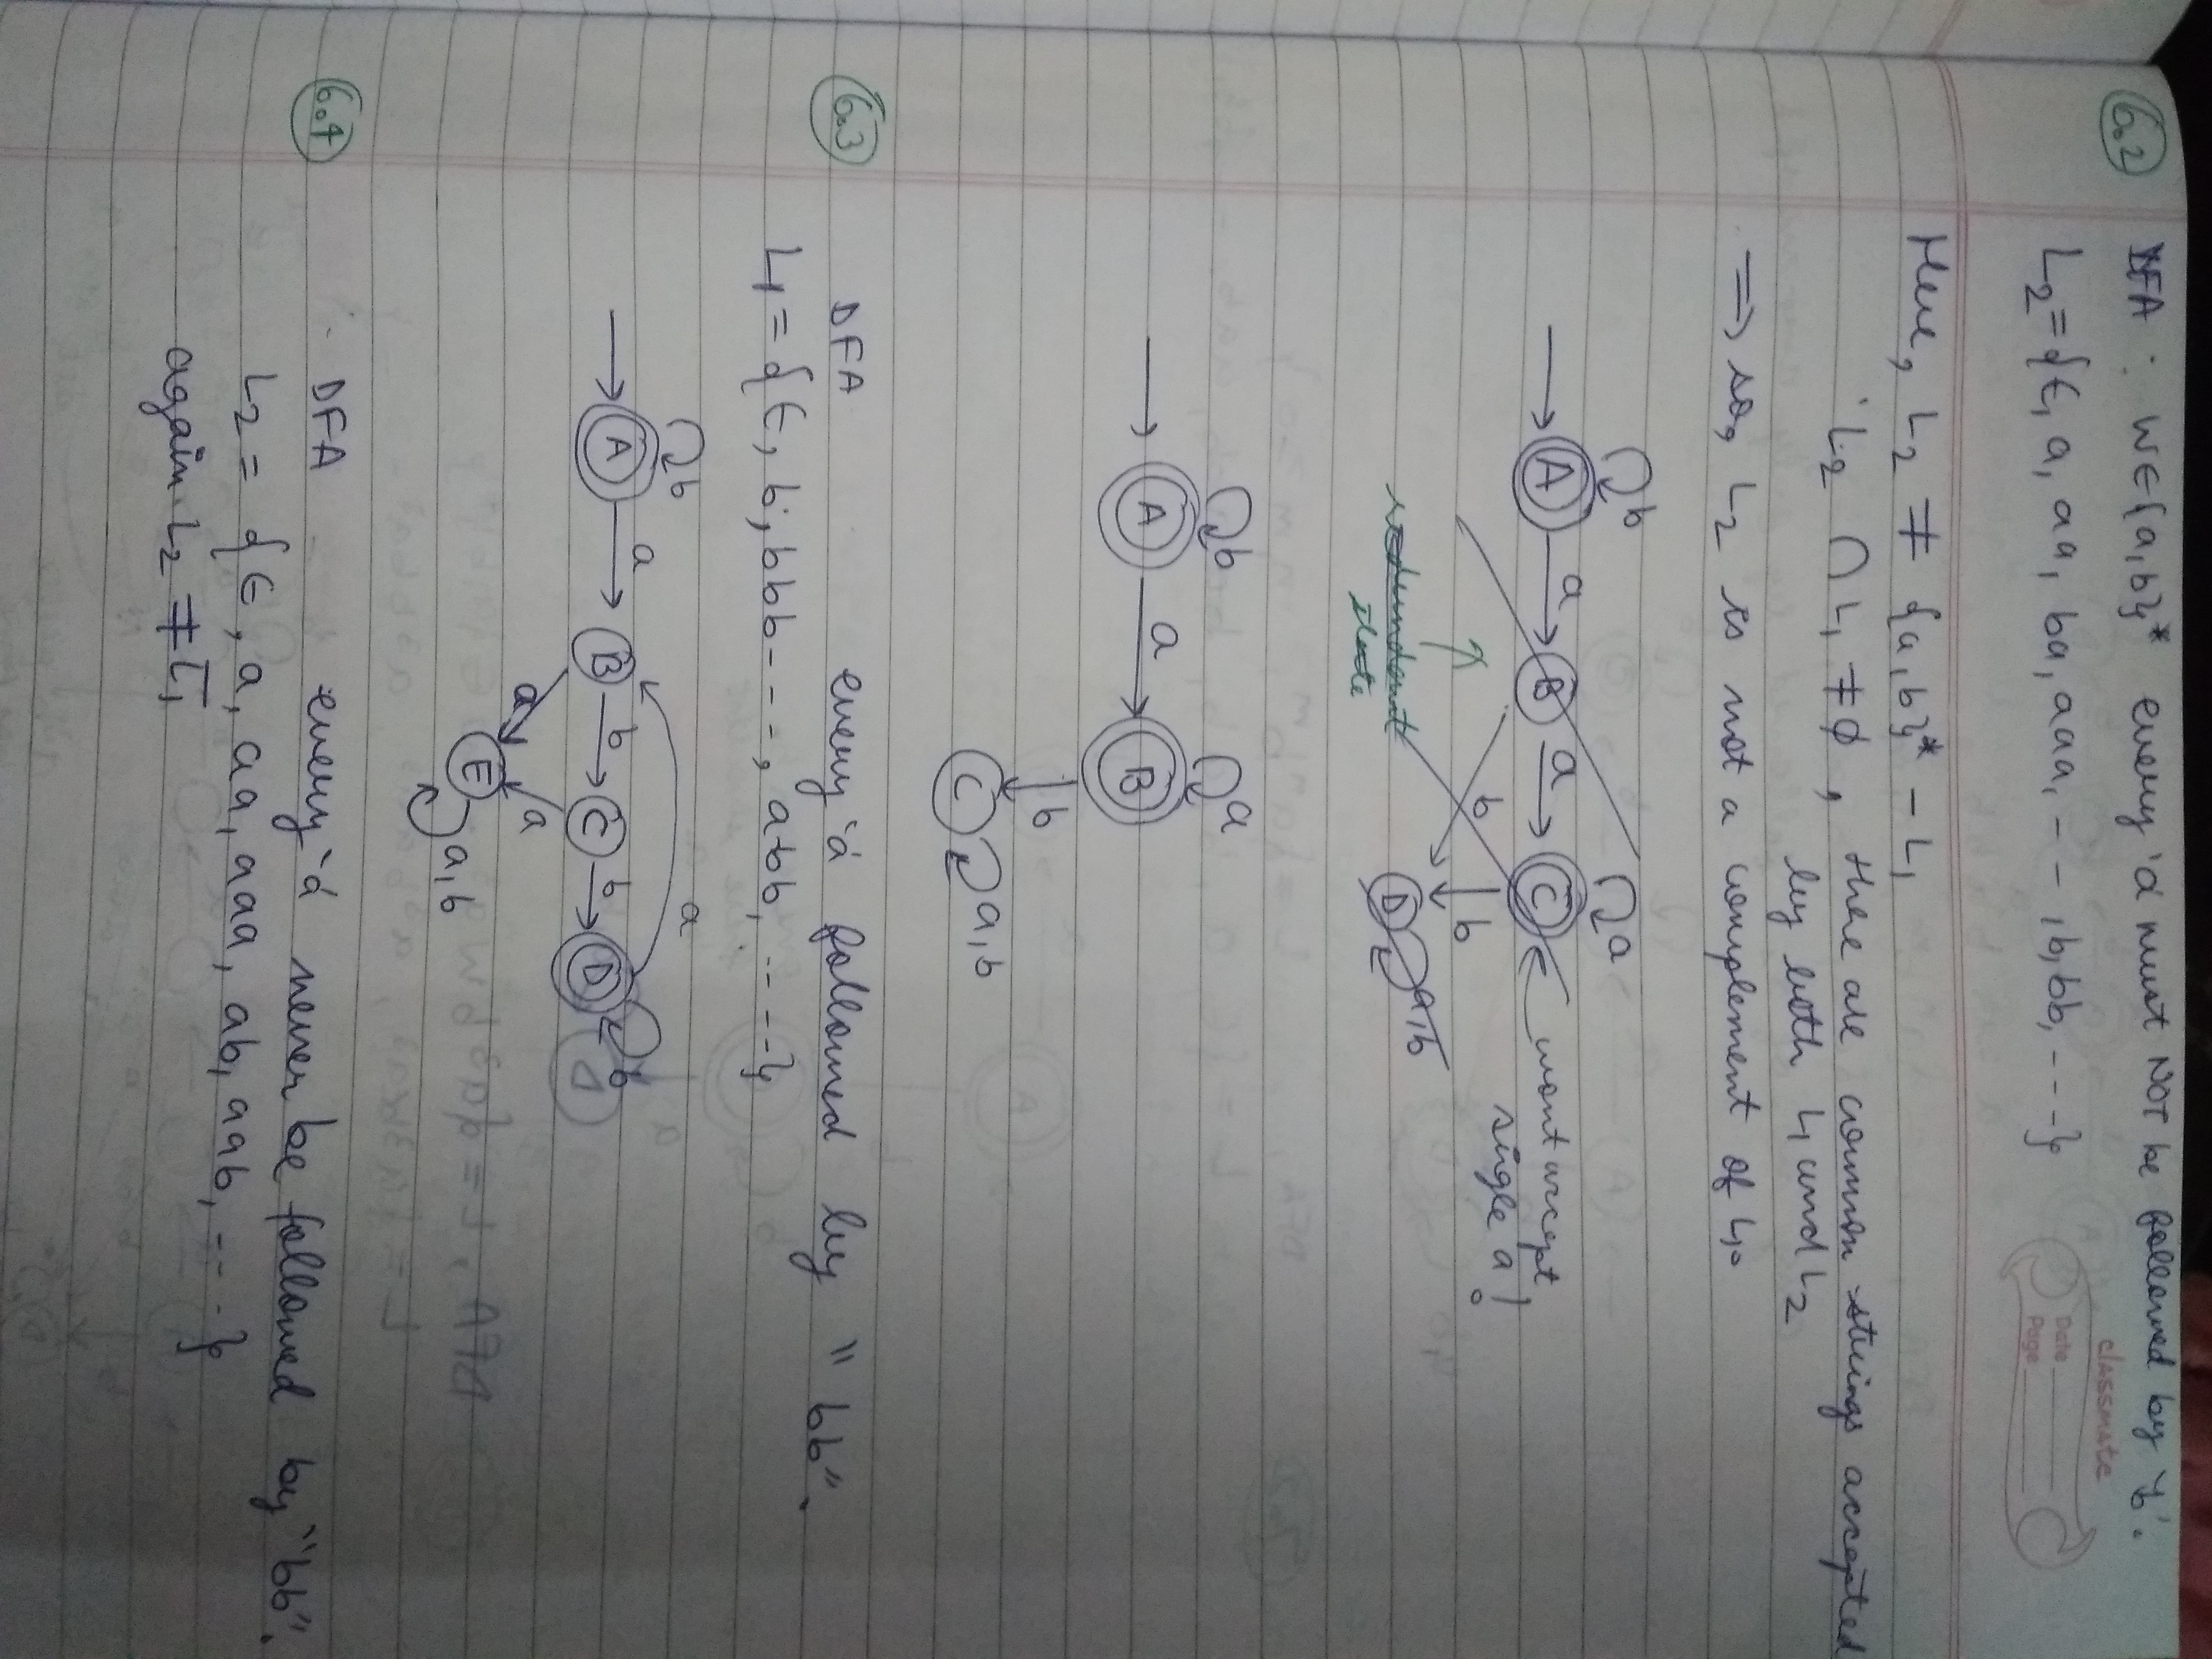 classmate
Date
Page
6.2 DFA : W ∈ {a,b}* every 'a' must NOT be followed by 'b'.
L2 = {ϵ, a, aa, ba, aaa, - - - , b, bb, - - -}
Here, L2 ≠ {a,b}* - L1
L2 ∩ L1 ≠ ϕ , there are common strings accepted
by both L1 and L2
⇒ so, L2 is not a complement of L1.
b a
A a B a C wont accept
single a!
b b
D a,b
redundant
state
b a
A a B
b
C a,b
6.3 DFA every 'a' followed by "bb".
L1 = {ϵ, b, bbb - - - -, abb, - - - -}
b a
A a B b C b D b
a a
E a,b
6.4 DFA every 'a' never be followed by "bb".
L2 = {ϵ, a, aa, aaa, ab, aab, - - - -}
again L2 ≠ L̅1